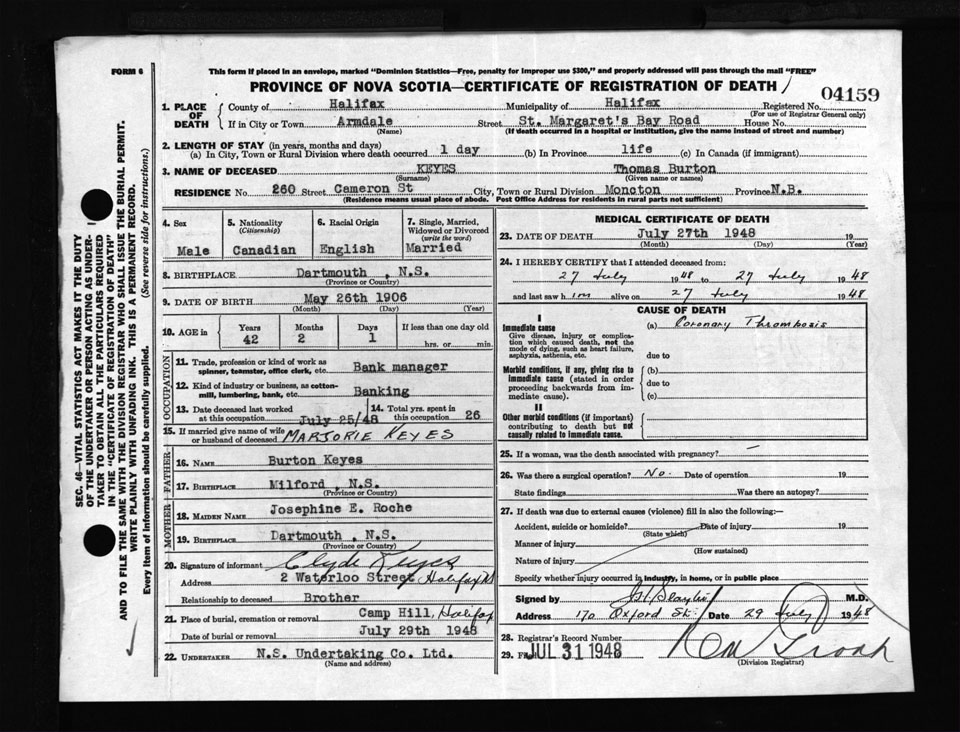 FORM 6
This form if placed in an envelope, marked "Dominion Statistics—Free, penalty for improper use $300," and properly addressed will pass through the mail "FREE"
PROVINCE OF NOVA SCOTIA—CERTIFICATE OF REGISTRATION OF DEATH
04159
1. PLACE OF DEATH
County of Halifax Municipality of Halifax Registered No.
(For use of Registrar General only)
If in City or Town Armdale Street St. Margaret's Bay Road House No.
(Name) (If death occurred in a hospital or institution, give the name instead of street and number)
2. LENGTH OF STAY (in years, months and days)
(a) In City, Town or Rural Division where death occurred 1 day (b) In Province life (c) In Canada (if immigrant)
3. NAME OF DECEASED KEYES Thomas Burton
(Surname) (Given name or names)
RESIDENCE No 260 Street Cameron St City, Town or Rural Division Moncton Province N.B.
(Residence means usual place of abode. Post Office Address for residents in rural parts not sufficient)
4. Sex
Male
5. Nationality
(Citizenship)
Canadian
6. Racial Origin
English
7. Single, Married, Widowed or Divorced
(write the word)
Married
8. BIRTHPLACE Dartmouth , N.S.
(Province or Country)
9. DATE OF BIRTH May 26th 1906
(Month) (Day) (Year)
10. AGE in
Years Months Days If less than one day old
42 2 1 hrs. or min.
OCCUPATION
11. Trade, profession or kind of work as spinner, teamster, office clerk, etc. Bank manager
12. Kind of industry or business, as cotton-mill, lumbering, bank, etc. Banking
13. Date deceased last worked at this occupation July 25/48
14. Total yrs. spent in this occupation 26
15. If married give name of wife or husband of deceased MARJORIE KEYES
FATHER
16. NAME Burton Keyes
17. BIRTHPLACE Milford , N.S.
(Province or Country)
MOTHER
18. MAIDEN NAME Josephine E. Roche
19. BIRTHPLACE Dartmouth , N.S.
(Province or Country)
20. Signature of informant Clyde Keyes
Address 2 Waterloo Street, Halifax
Relationship to deceased Brother
21. Place of burial, cremation or removal Camp Hill, Halifax
Date of burial or removal July 29th 1948
22. UNDERTAKER N.S. Undertaking Co. Ltd.
(Name and address)
MEDICAL CERTIFICATE OF DEATH
23. DATE OF DEATH July 27th 1948 19
(Month) (Day) (Year)
24. I HEREBY CERTIFY that I attended deceased from:
27 July 1948 to 27 July 1948
and last saw him alive on 27 July 1948
CAUSE OF DEATH
I
Immediate cause (a) Coronary Thrombosis
Give disease, injury or complication which caused death, not the mode of dying, such as heart failure, asphyxia, asthenia, etc.
due to
Morbid conditions, if any, giving rise to immediate cause (stated in order proceeding backwards from immediate cause).
(b)
due to
(c)
II
Other morbid conditions (if important) contributing to death but not causally related to immediate cause.
25. If a woman, was the death associated with pregnancy? —
26. Was there a surgical operation? No. Date of operation 19
State findings Was there an autopsy?
27. If death was due to external causes (violence) fill in also the following:—
Accident, suicide or homicide? Date of injury 19
(State which)
Manner of injury
(How sustained)
Nature of injury
Specify whether injury occurred in industry, in home, or in public place
Signed by M.D.
Address 170 Oxford St. Date 29 July 1948
28. Registrar's Record Number
29. JUL 31 1948
(Division Registrar)
SEC. 46—VITAL STATISTICS ACT MAKES IT THE DUTY
OF THE UNDERTAKER OR PERSON ACTING AS UNDER-
TAKER TO OBTAIN ALL THE PARTICULARS REQUIRED
IN THE "CERTIFICATE OF REGISTRATION OF DEATH"
AND TO FILE THE SAME WITH THE DIVISION REGISTRAR WHO SHALL ISSUE THE BURIAL PERMIT.
WRITE PLAINLY WITH UNFADING INK. THIS IS A PERMANENT RECORD.
Every item of information should be carefully supplied. (See reverse side for instructions.)